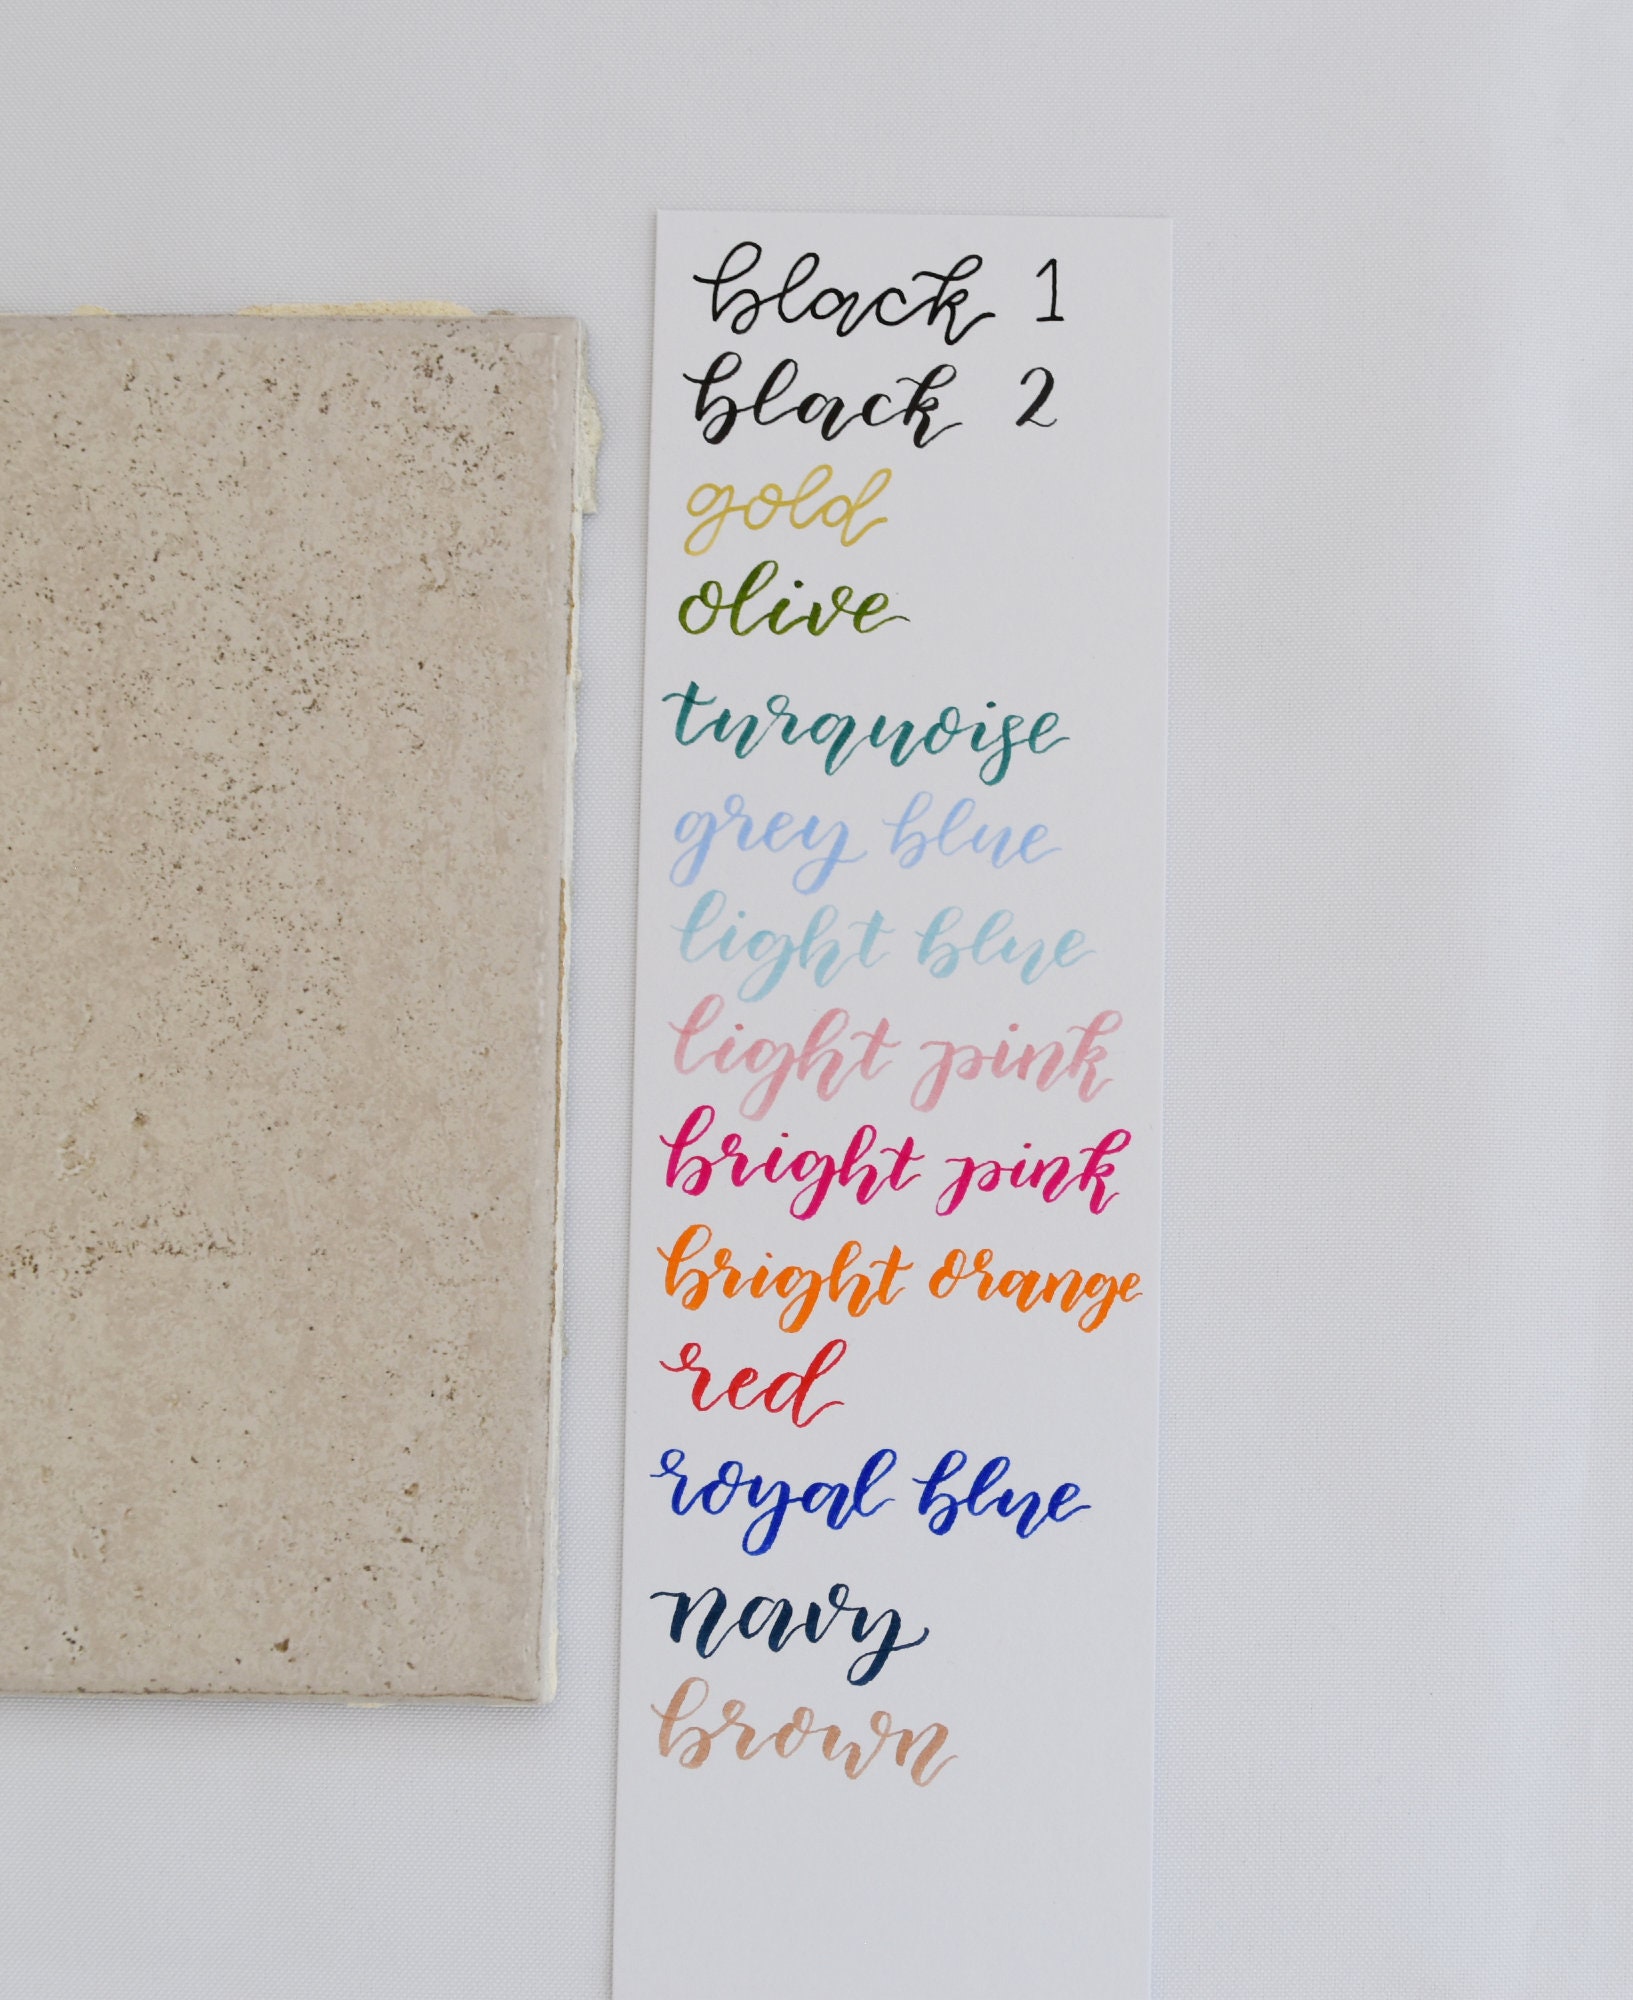 black 1
black 2
gold
olive
turquoise
grey blue
light blue
light pink
bright pink
bright orange
red
royal blue
navy
brown